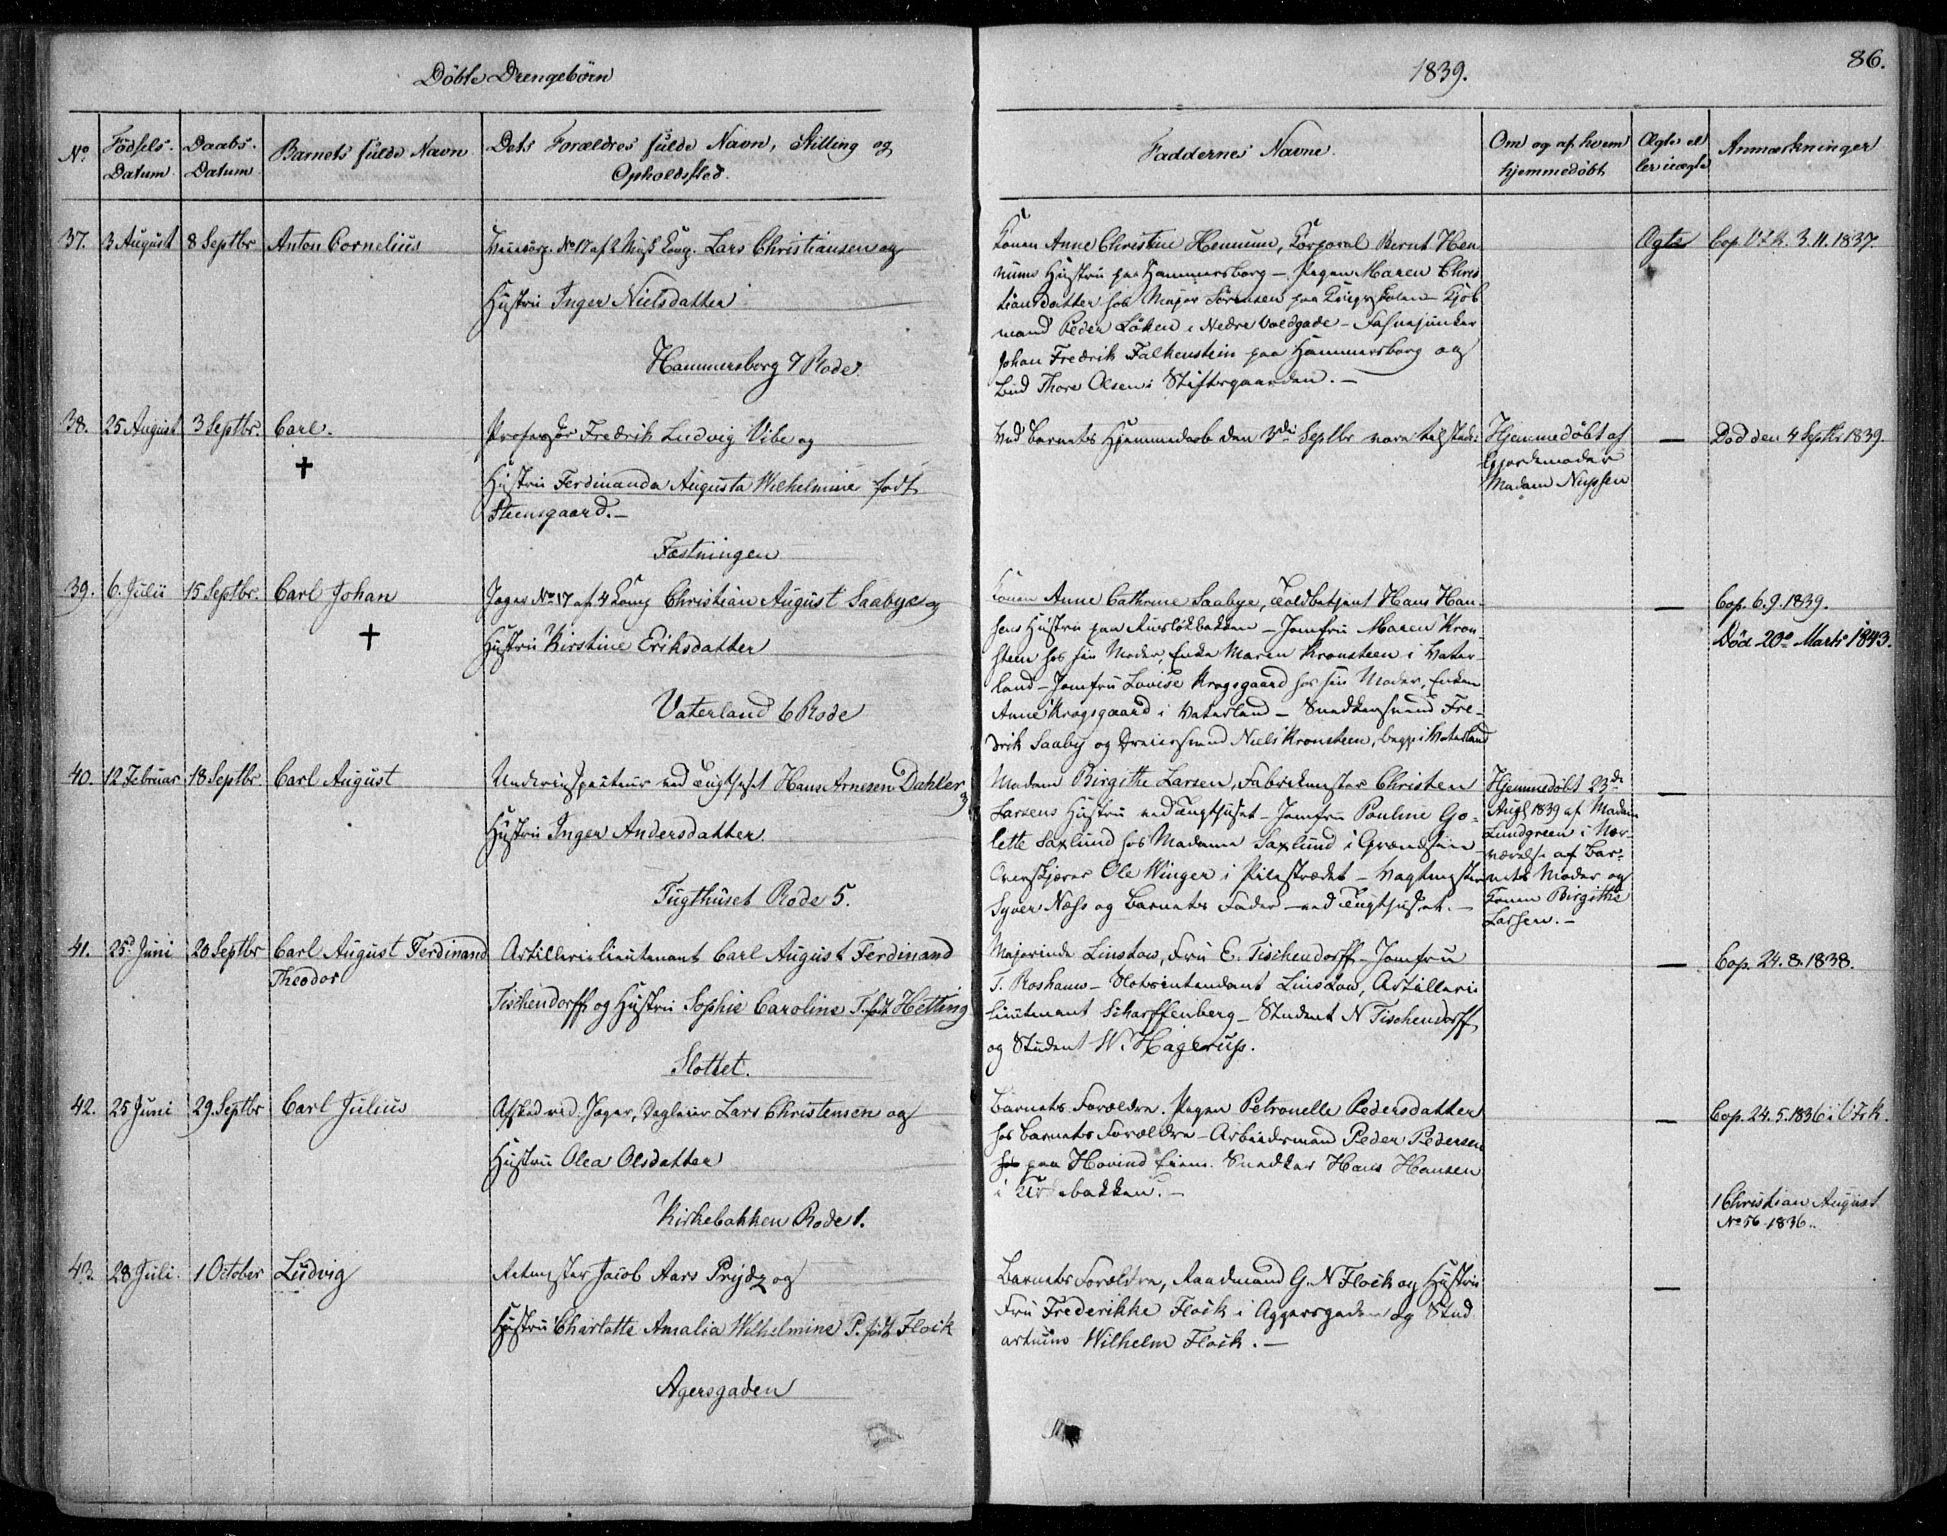 Döbte Drengebörn
1839.
86.
No.
Födsels-
Datum
Daabs-
Datum
Barnets fulde Navn
Dets Forældres fulde Navn, Stilling og
Opholdssted.
Faddernes Navne
Om og af hvem
hjemmedøbt
Ægte el
ler uægte
Anmærkninger
37. 3 August 8 Septbr Anton Cornelius
No 17 af 2 Lars Christiansen og
Hustru Inger Nielsdatter
Hammersborg 7 Rode.
Konen Anne Christine Hennum, Korporal Bernt Hen
nums Hustru paa Hammersborg - Pigen Maren Chris
tiansdatter hos Major Sörensen paa Krigsskolen - Kjöb
mand Peder Löken i Nedre Voldgade - Fahnejunker
Johan Fredrik Falkenstein paa Hammersborg og
Bud Thore Olsen i Stiftsgaarden. -
Ægte
Cop. 3.11.1837.
38. 25 August 3 Septbr. Carl.
Professor Fredrik Ludvig Vibe og
Hustru Ferdinanda Augusta Wilhelmine født
Steensgaard. -
Fæstningen
Ved Barnets Hjemmedaab den 3die Septbr vare tilstede:
Hjemmedøbt af
Gjordemoder
Madam Nissen
—
Død den 4 Septbr 1839.
39. 6. Julii 15 Septbr. Carl Johan
Jæger No 17 af 4 Comp Christian August Saabye og
Hustru Kirstine Eriksdatter
Vaterland 6 Rode
Konen Anne Cathrine Saabye, Toldbetjent Hans Han-
sens Hustru paa Ruseløkbakken - Jomfru Maren Kron-
steen hos sin Moder, Enke Maren Kronsteen i Vater-
land - Jomfru Lovise Krogsgaard hos sin Moder, Enken
Anne Krogsgaard i Vaterland - Snedkersvend Fre-
drik Saaby og Dreiersvend Niels Kronsteen, begge i Vaterland
—
Cop. 6.9.1839.
Død 20de Marts 1843.
40. 12 Februar 18 Septbr. Carl August
Underinspecteur ved Tugthuset Hans Arnesen Dahler og
Hustru Inger Andersdatter.
Tugthuset Rode 5.
Madam Birgithe Larsen, Fabrikmester Christen
Larsens Hustru ved Tugthuset - Jomfru Pauline Go-
lette Saxlund hos Madame Saxlund i Grændsen -
Overskjærer Ole Winger i Pilestrædet - Vagtmester
Syver Næss og Barnets Fader - ved Tugthuset. -
Hjemmedøbt 23de
Augs 1839 af Madam
Lundgreen i Nær-
værelse af Bar-
nets Moder og
Konen Birgithe
Larsen. -
—
41. 25de Juni 20 Septbr Carl August Ferdinand
Theodor
Artillerielieutenant Carl August Ferdinand
Tischendorff og Hustru Sophie Caroline T. født Hetting
Slottet.
Majorinde Linstow, Fru E. Tischendorff - Jomfru
T. Roshauw - Slotsintendant Linstow, Artillerie
lieutenant Scharffenberg - Student N Tischendorff
og Student W. Hagerup.
—
Cop. 24.8.1838.
42. 25 Juni 29. Septbr Carl Julius
Afskediged. Jæger, Dagleier Lars Christensen og
Hustru Olea Olsdatter
Kirkebakken Rode 1.
Barnets Forældre. Pigen Petronelle Pedersdatter
hos Barnets Forældre - Arbeidsmand Peder Pedersen
paa Hovind Eiene. Snedker Hans Hansen
i Kirkebakken. -
—
Cop. 24.5.1836
1 Christian August
No 56 1836.
43. 28 Juli. 1 October Ludvig
Retmester Jacob Aars Prydz og
Hustru Charlotte Amalia Wilhelmine P. født Flock
Agersgaden
Barnets Forældre, Raadmand G. N Flock og Hustru
Fru Frederikke Flock i Aggersgaden og Stud
artium Wilhelm Flock. -
—